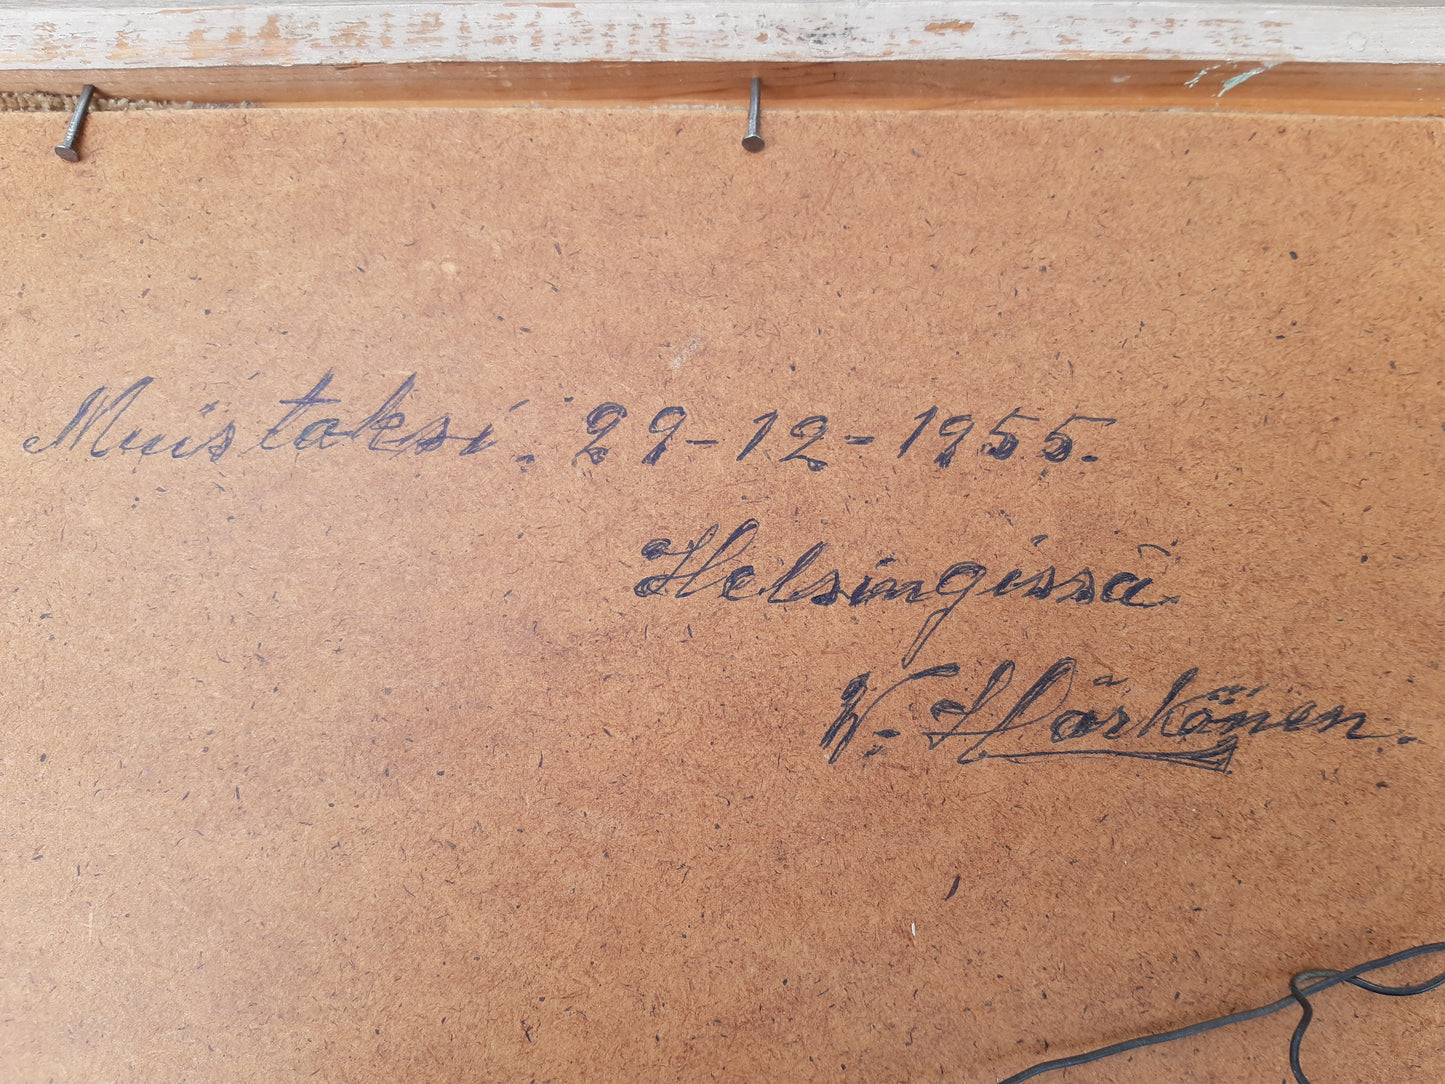 Muistoksi. 29-12-1955.
Helsingissä
V. Härkönen.